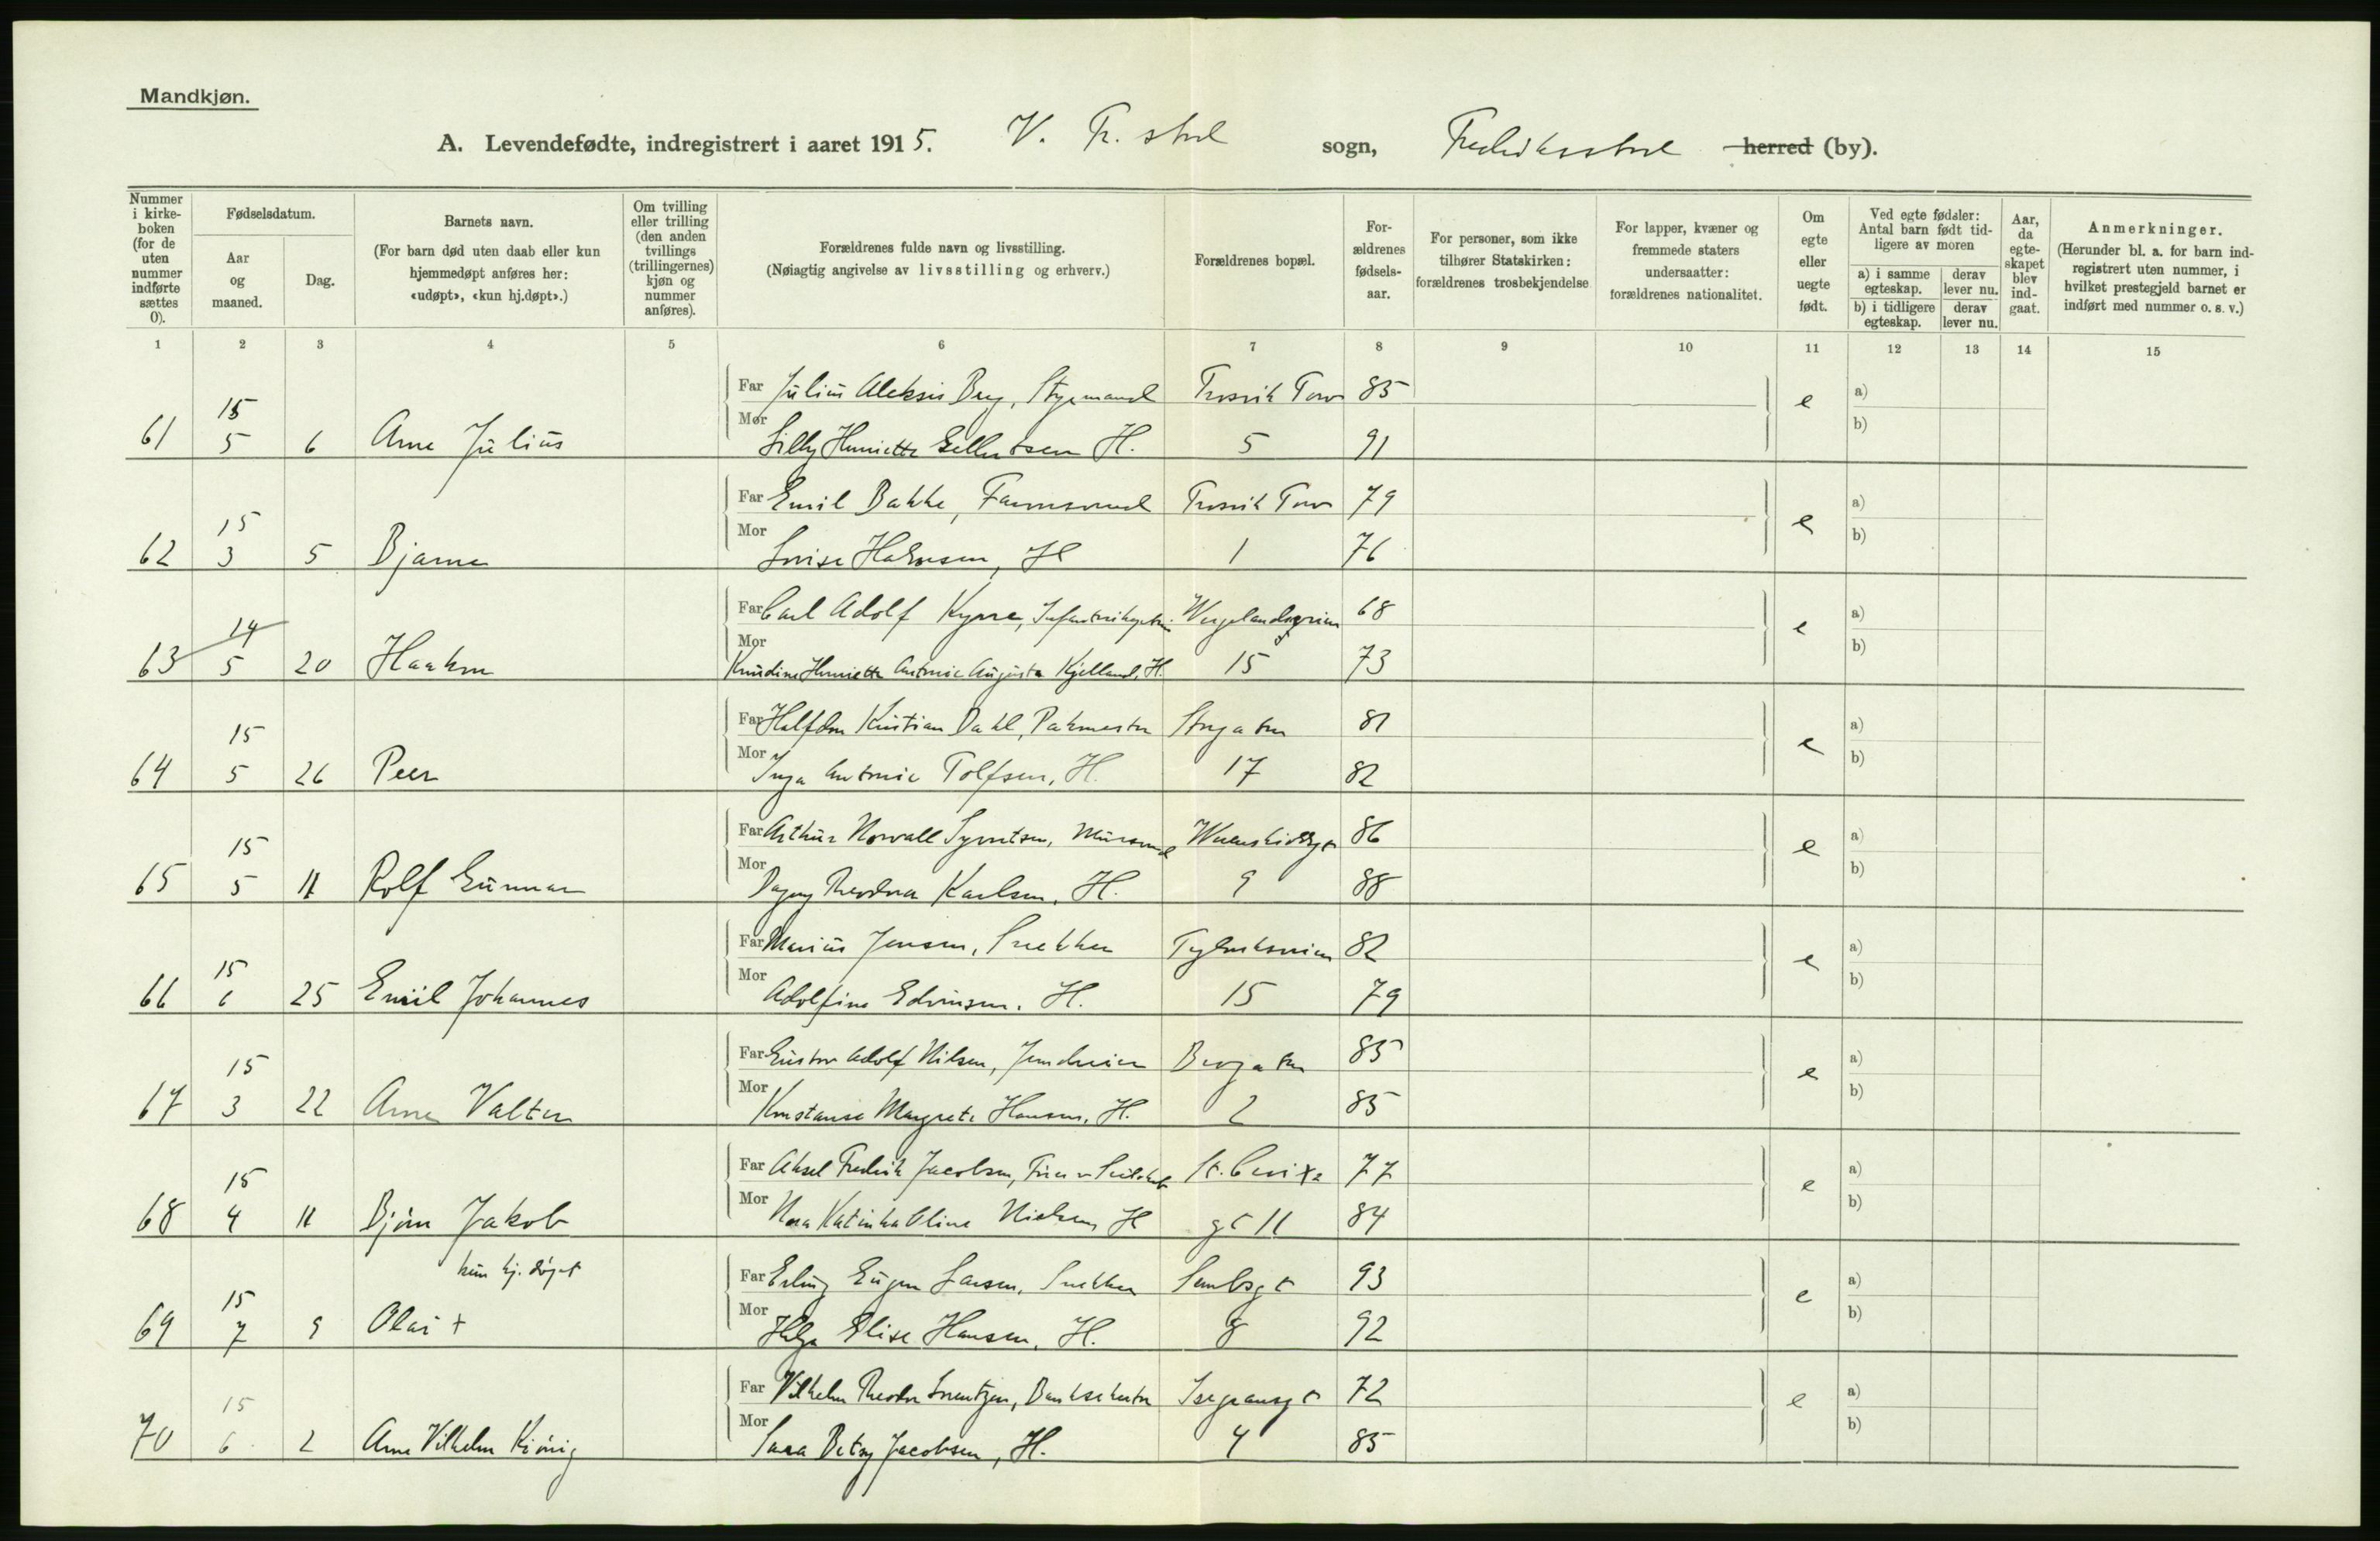 Mandkjøn.
A. Levendefødte, indregistrert i aaret 1915. V. Fr.stad sogn, Fredriksstad herred (by).
Nummer i kirke-boken (for de uten nummer indførte sættes 0).
Fødselsdatum.
Aar og maaned.
Dag.
Barnets navn.
(For barn død uten daab eller kun hjemmedøpt anføres her: «udøpt», «kun hj.døpt».)
Om tvilling eller trilling (den anden tvillings (trillingernes) kjøn og nummer anføres).
Forældrenes fulde navn og livsstilling.
(Nøiagtig angivelse av livsstilling og erhverv.)
Forældrenes bopæl.
For-ældrenes fødsels-aar.
For personer, som ikke tilhører Statskirken: forældrenes trosbekjendelse
For lapper, kvæner og fremmede staters undersaatter: forældrenes nationalitet.
Om egte eller uegte født.
Ved egte fødsler: Antal barn født tid-ligere av moren
a) i samme egteskap.
derav lever nu.
b) i tidligere egteskap.
derav lever nu.
Aar, da egte-skapet blev ind-gaat.
Anmerkninger.
(Herunder bl. a. for barn ind-registrert uten nummer, i hvilket prestegjeld barnet er indført med nummer o. s. v.)
1 2 3 4 5 6 7 8 9 10 11 12 13 14 15
15 Far Julius Aleksis Berg, Styrmand Trosvik Torv 85 e a)
61 5 6 Arne Julius Mor Lilly Henriette Gellertsen H. 5 91 b)
15 Far Emil Bakke, Trosvik Torv 79 e a)
62 3 5 Bjarne Mor Lovise Halvorsen, H 1 76 b)
14 Far Carl Adolf 68 e a)
63 5 20 Haakon Mor Knudine Henriette Antonie Augusta Kjelland, H. 15 73 b)
15 Far Halfdan Kristian Dahl, Pakmester Storgaten 81 e a)
64 5 26 Peer Mor Inga Antonie Tolfsen, H. 17 82 b)
15 Far Arthur Norvall Syvertsen, Murersvend 86 e a)
65 5 11 Rolf Gunnar Mor Dagny Theodora Karlsen, H. 9 88 b)
15 Far Marius Jensen, Snekker Teglverksveien 82 e a)
66 6 25 Emil Johannes Mor Adolfine Edvinsen. H. 15 79 b)
15 Far Gustav Adolf Nilsen, 85 e a)
67 3 22 Arne Valter Mor Konstanse Margrete Hansen, H. 2 85 b)
15 Far Aksel Fredrik Jacobsen, St. Croixe 77 e a)
68 4 11 Bjørn Jakob Mor Nora Katinka Oline Nielsen H gt 11 84 b)
kun hj. døpt
15 Far Erling Eugen Larsen, Snekker 93 e a)
69 7 9 Olai + Mor Helga Elise Hansen, H. 8 92 b)
15 Far Vilhelm Theodor Lorentzen, Banksekretær Isegransgt 72 e a)
70 6 2 Arne Vilhelm Kiønig Mor Sara Betsy Jacobsen, H. 4 85 b)